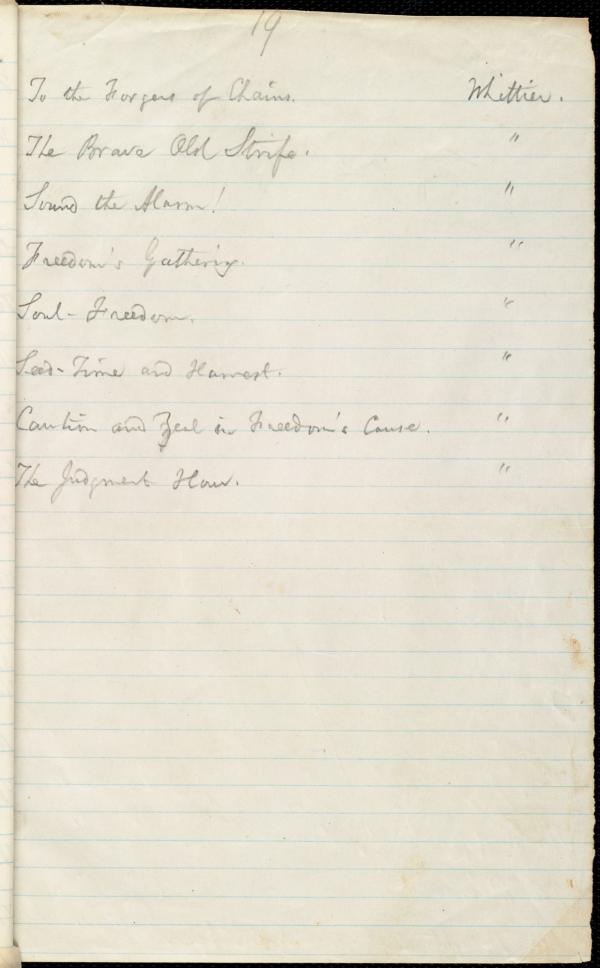 19
To the Forgers of Chains. Whittier.
The Brave Old Strife. "
Sound the Alarm! "
Freedom's Gathering. "
Soul-Freedom. "
Seed-Time and Harvest. "
Caution and Zeal in Freedom's Cause. "
The Judgment Hour. "